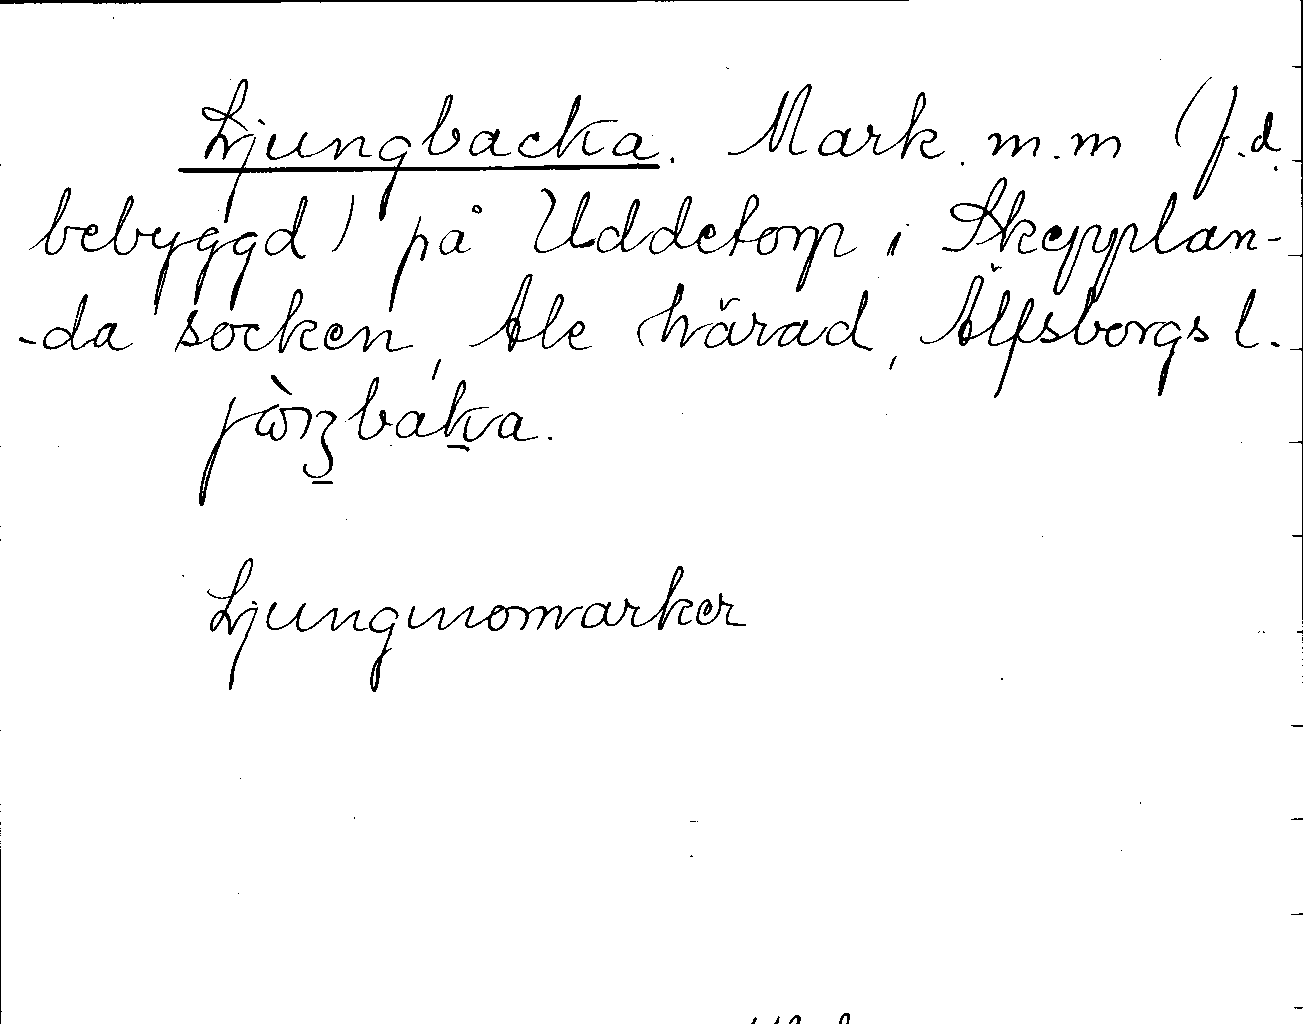 Ljungbacka. Mark. m.m (f.d.
bebyggd) på Uddetorp i Skepplan-
-da socken, Ale härad, Älfsborgs l.
Ljungmomarker